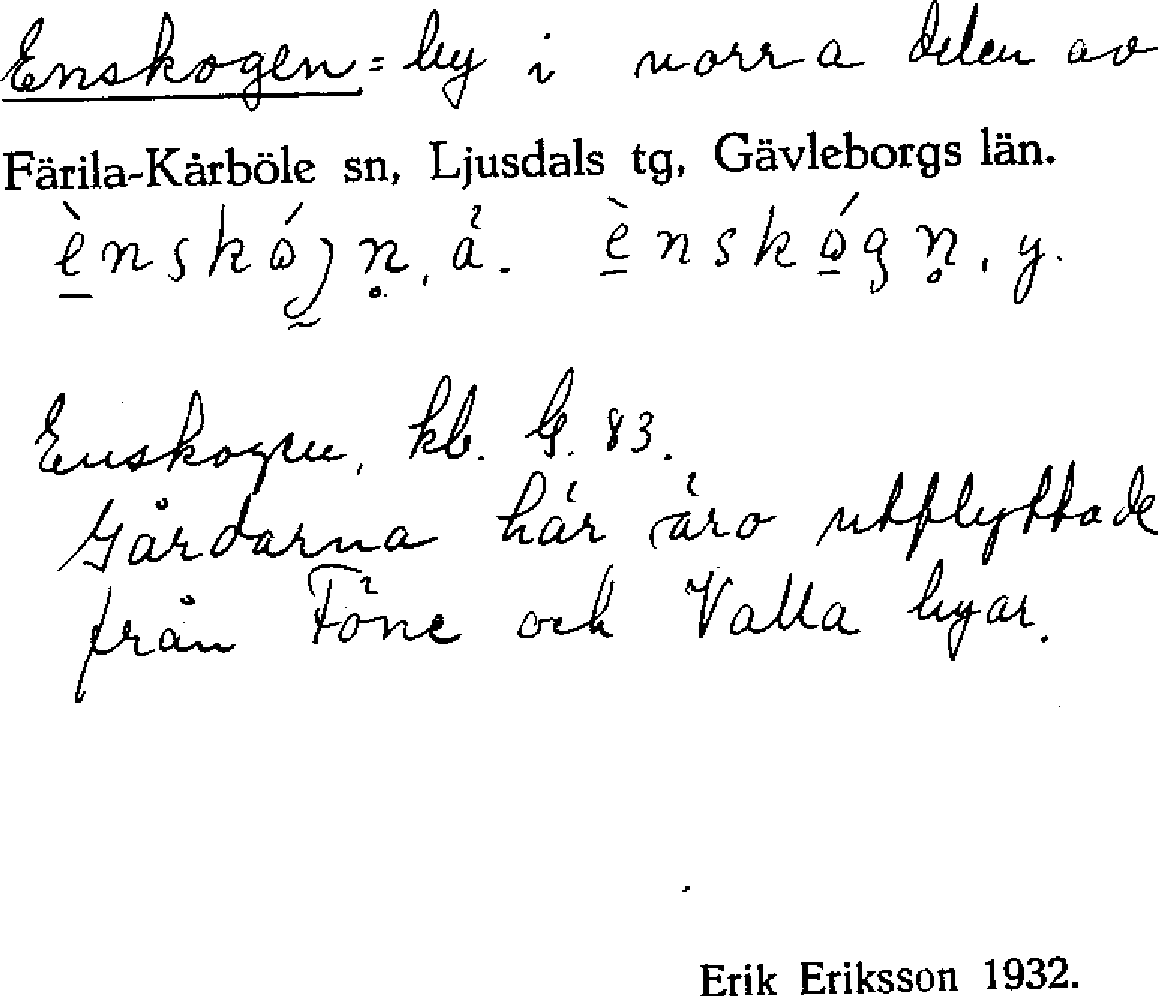 Enskogen = by i norra delen av
Färila-Kårböle sn, Ljusdals tg, Gävleborgs län.
è̲nskóɡn̥, ä. è̲nskó̲gn̥, y.
Enskogen, kb. G. 83.
Gårdarna här äro utflyttade
från Föne och Valla byar.
Erik Eriksson 1932.